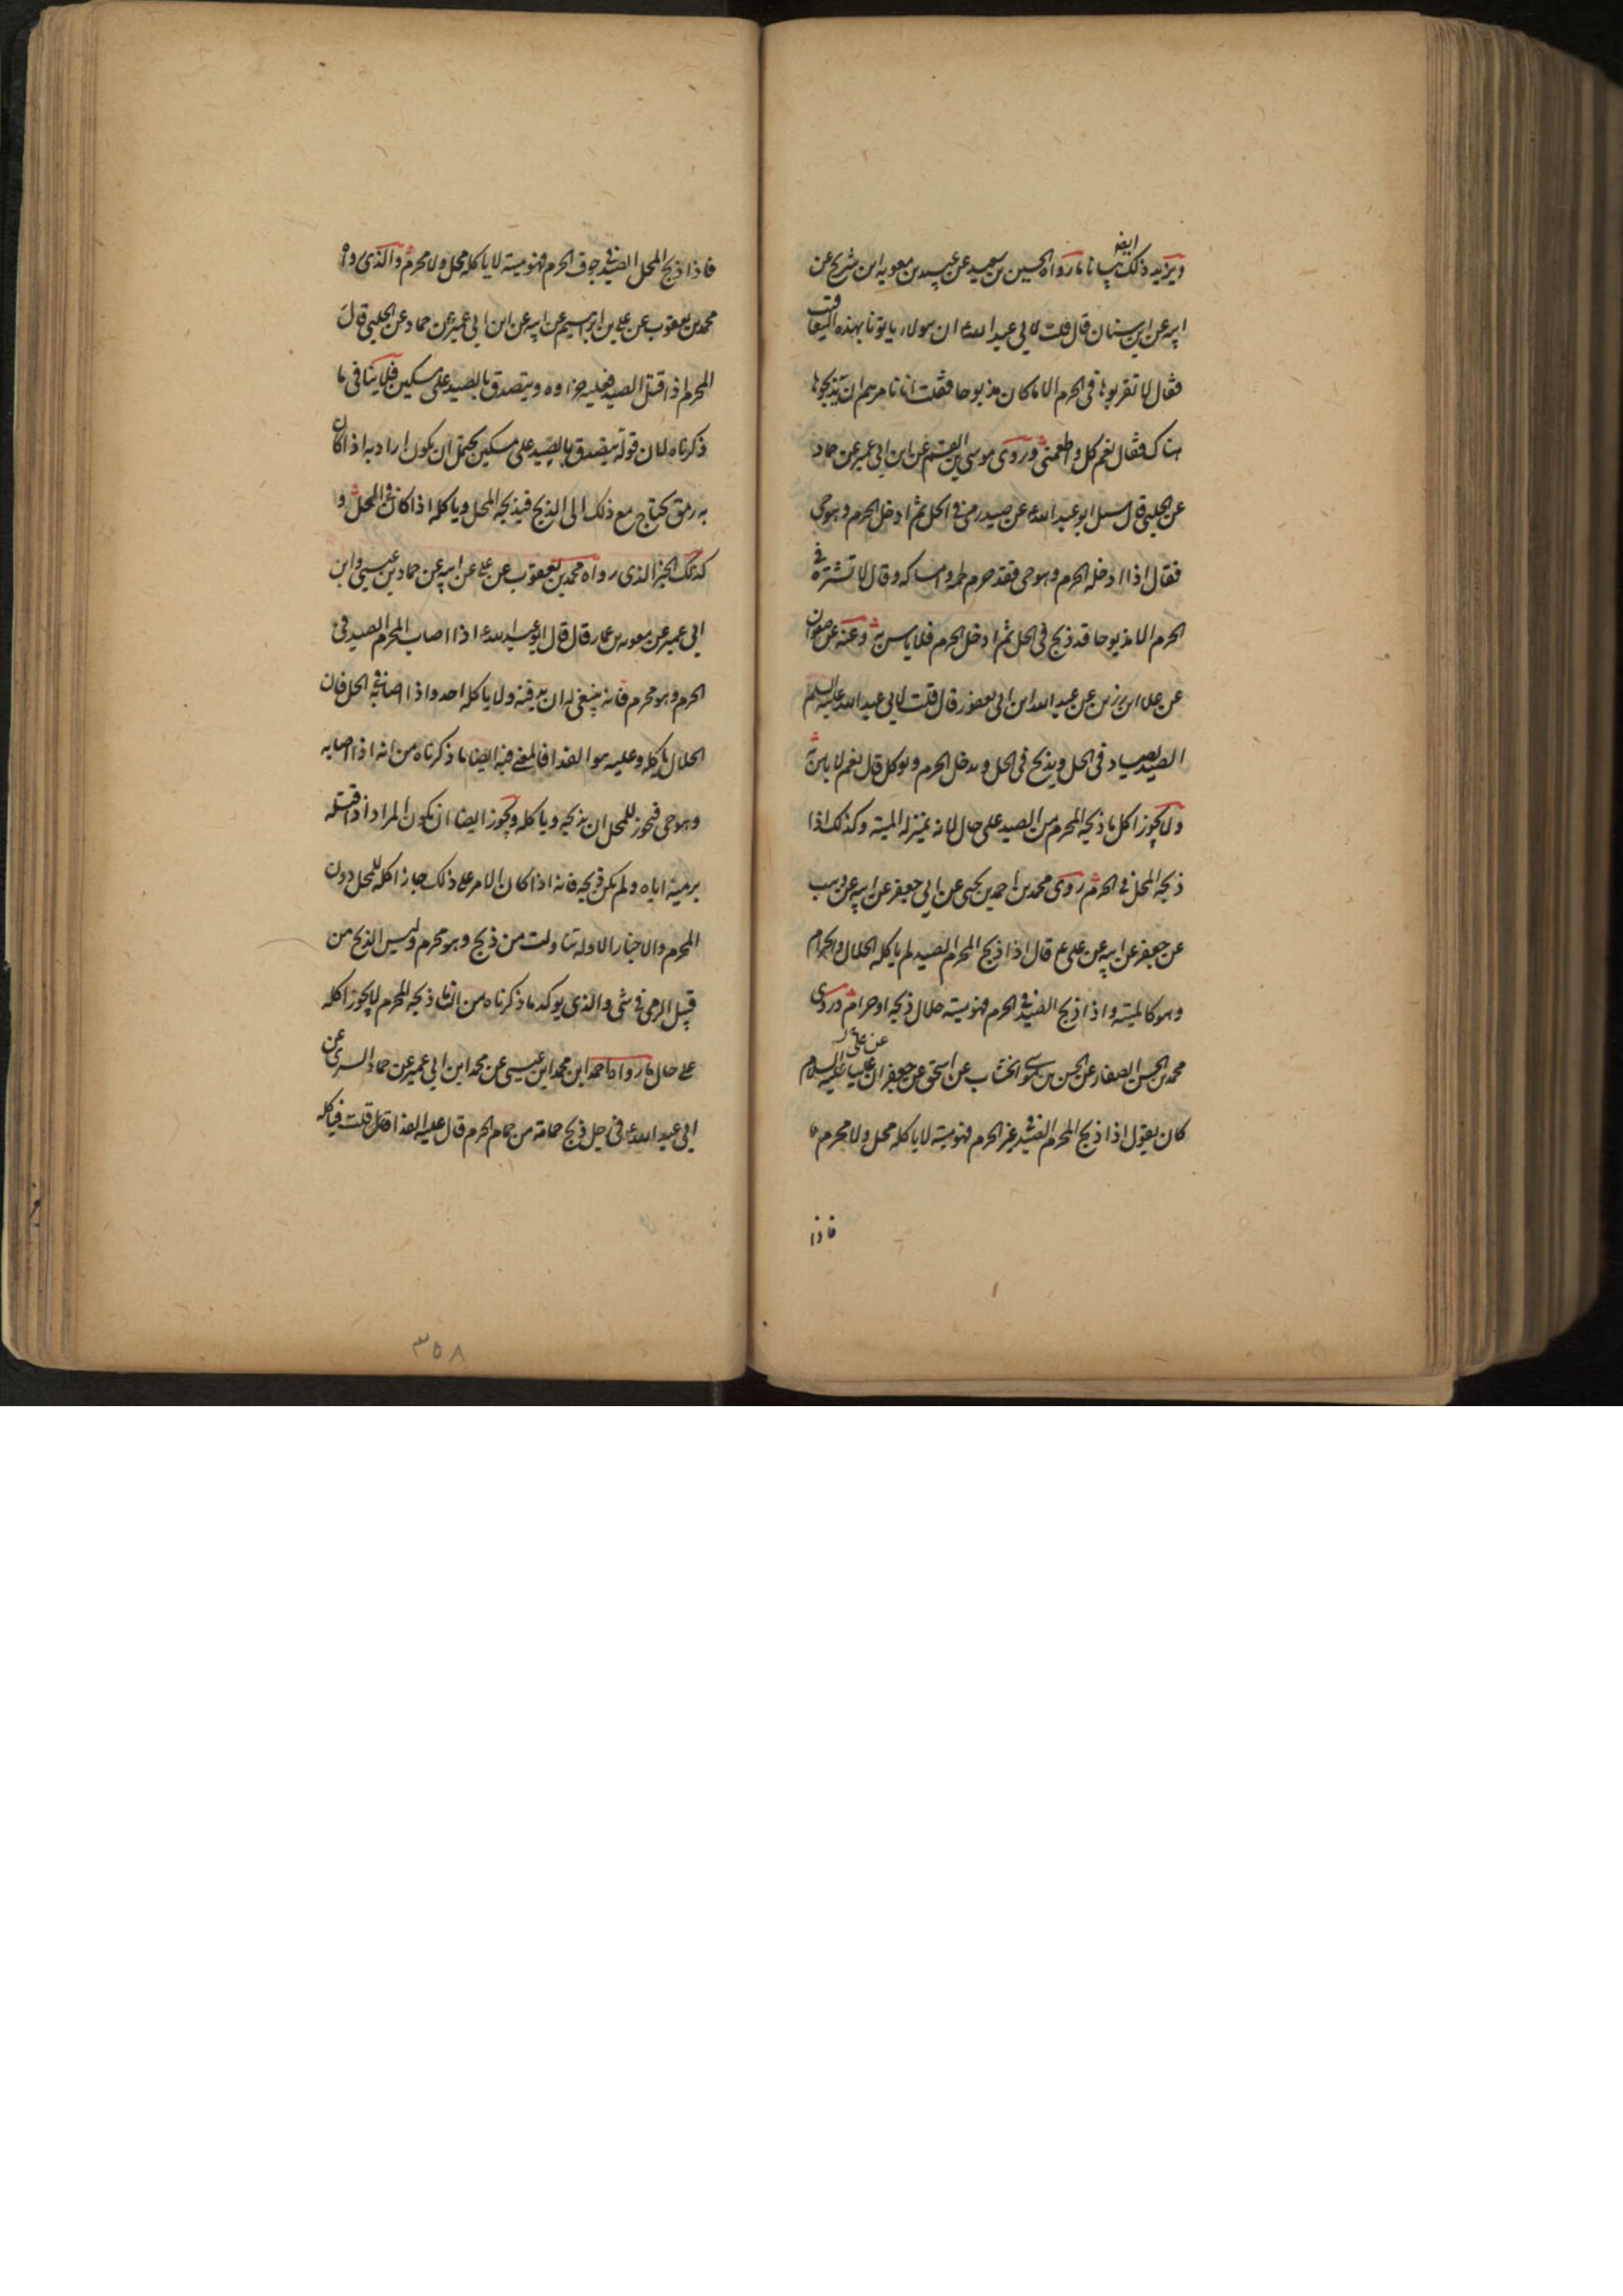 ويزيد ذلك ايضا بيانا ما رواه الحسين بن سعيد عن عبيد بن معوية ابن شريح عن
ابيه عن ابن سنان قال قلت لابي عبد الله ع ان هولاء ياتونا بهذه اليعاقيب
فقال لا تقربوها في الحرم الا ما كان مذبوحا فقلت انا نامرهم ان يذبحوها
هناك فقال نعم كل واطعمني وروى موسى بن القسم عن ابن ابي عمير عن حماد
عن الحلبي قال سيل ابو عبد الله ع عن صيد رمي في الحل ثم ادخل الحرم وهو حي
فقال اذا ادخله الحرم وهو حي فقد حرم لحمه وامساكه وقال لا تشتره في
الحرم الا مذبوحا قد ذبح في الحل ثم ادخل الحرم فلا باس به وعنه عن صفوان
عن علا ابن رزين عن عبد الله ابن ابي يعفور قال قلت لابي عبد الله عليه السلم
الصيد يصاد في الحل ويذبح في الحل ويدخل الحرم ويوكل قال نعم لا باس به
ولا يجوز اكل ما ذبحه المحرم من الصيد على حال لانه بمنزلة الميتة وكذلك اذا
ذبحه المحل في الحرم روى محمد بن احمد بن يحيى عن ابي جعفر عن ابيه عن وهب
عن جعفر عن ابيه عن علي ع قال اذا ذبح المحرم الصيد لم ياكله الحلال والحرام
وهو كالميتة واذا ذبح الصيد في الحرم فهو ميتة حلال ذبحه او حرام وروى
محمد بن الحسن الصفار عن الحسن بن موسى الخشاب عن اسحق عن جعفر ان عليا عليه السلام
كان يقول اذا ذبح المحرم الصيد في غير الحرم فهو ميتة لا ياكله محل ولا محرم
فاذا
فاذا ذبح المحل الصيد في جوف الحرم فهو ميتة لا ياكله محل ولا محرم والذي رواه
محمد بن يعقوب عن علي بن ابراهيم عن ابيه عن ابن ابي عمير عن حماد عن الحلبي قال
المحرم اذا قتل الصيد فعليه جزاوه ويتصدق بالصيد على مسكين فلا ينافي ما
ذكرناه لان قوله يتصدق بالصيد على مسكين يحتمل ان يكون اراد به اذا كان
به رمق يحتاج مع ذلك الى الذبح فيذبحه المحل وياكله اذا كان في المحل و
كذلك الخبر الذي رواه محمد بن يعقوب عن علي عن ابيه عن حماد بن عيسى وابن
ابي عمير عن معوية بن عمار قال قال ابو عبد الله ع اذا اصاب المحرم الصيد في
الحرم وهو محرم فانه ينبغي له ان يدفنه ولا ياكله احد واذا اصابه في الحل فان
الحلال ياكله وعليه هو الفدا فالمعنى فيه ايضا ما ذكرناه من انه اذا اصابه
وهو حي فيجوز للمحل ان يذبحه وياكله ويجوز ايضا ان يكون المراد اذا قتله
برميه اياه ولم يكن ذبحه فانه اذا كان الامر على ذلك جاز اكله للمحل دون
المحرم والاخبار الاولة تناولت من ذبح وهو محرم وليس الذبح من
قبيل الرمي في شي والذي يوكد ما ذكرناه من ان ما ذبحه المحرم لا يجوز اكله
على حال ما رواه احمد ابن محمد ابن عيسى عن محمد ابن ابي عمير عن حماد السري عن
ابي عبد الله ع في رجل ذبح حمامة من حمام الحرم قال عليه الفدا قال قلت فياكله
٣٥٨